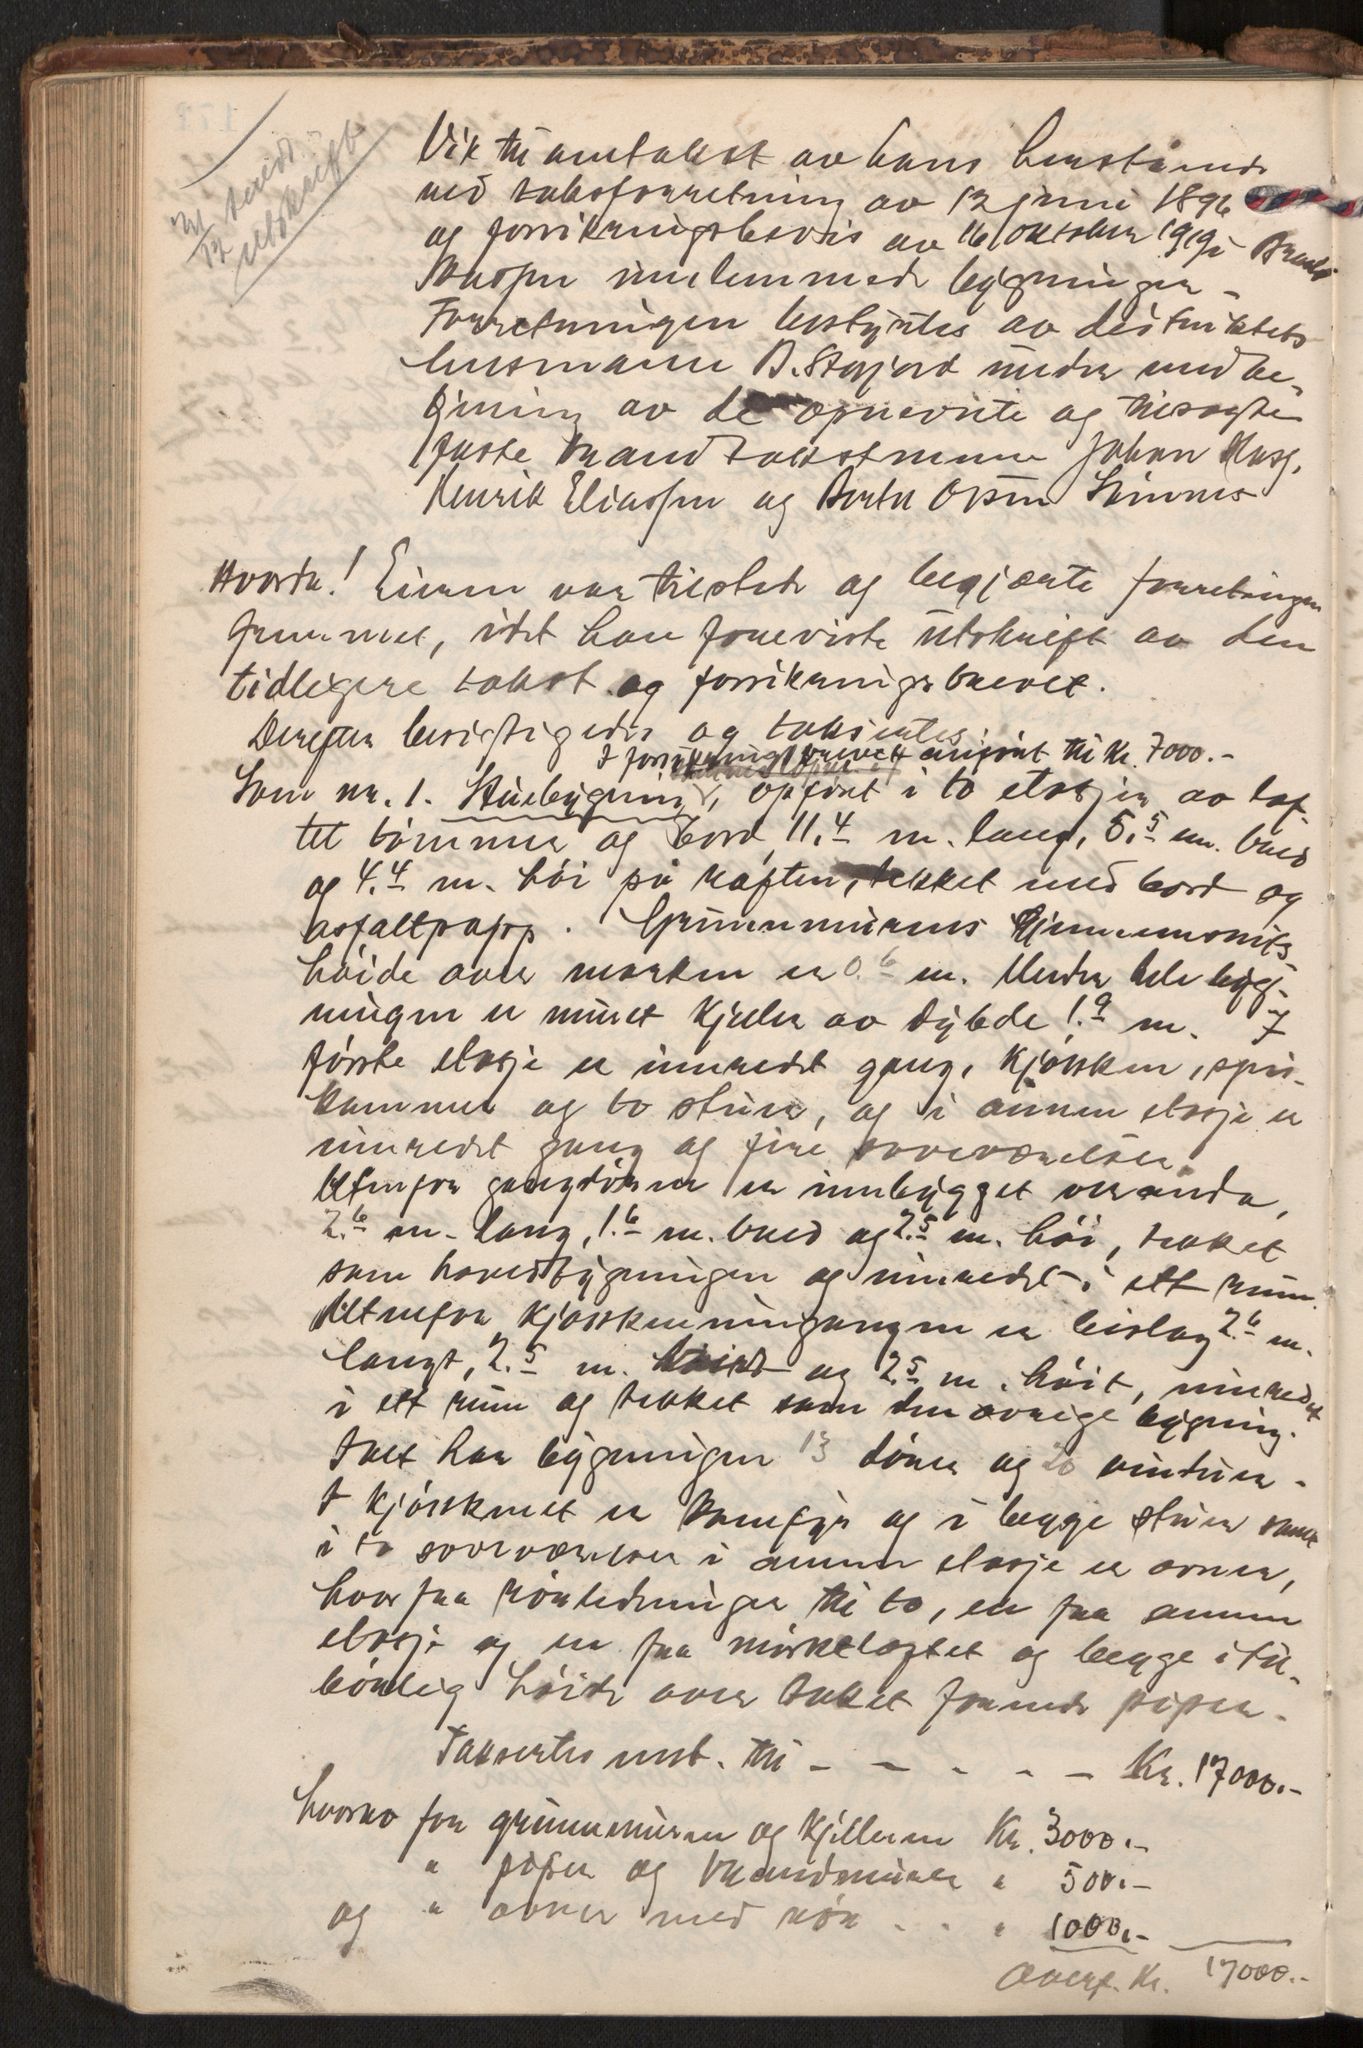 Utskrift
Vik til omtakst av hans henstående
ved taksforretning av 12 juni 1896
og forsikringsbevis av 16 oktober 1919 i Brand-
kassen innlemmede bygninger -
Forretningen bestyrtes av distriktets
lensmann A. Storfjord under medbe-
tjening av de opnevnte og tilsagte
faste brandtakstmenn Johan
Henrik Eliassen og Olsen
Hvorda! Eieren var tilstede og begjærte forretningen
fremmet, idet han foreviste utskrift av den
tidligere takst og forsikringsbrevet.
Derefter besigtigedes og taksertes
I forsikringsbrevet anført til Kr. 7000.-
Som nr. 1. Stuebygning, opført i to etasjer av laf-
tet tømmer og bord, 11.4 m. lang, 5.5 m. bred
og 4.4 m. høi på raften, tekket med bord og
asfaltpapp. Grunnmurens gjennemsnits-
høide over marken er 0.6 m. Under hele byg-
ningen er muret kjeller av dybde 1.9 m. I
første etasje er innredet gang, kjøkken, spis-
kammer og to stuer, og i annen etasje er
innredet gang og fire soveværelser.
Utenfor gangdøren er innbygget veranda,
2.6 m. lang, 1.6 m. bred og 2.5 m. høi, tekket
som hovedbygningen og innredet i ett rum.
Utenfor kjøkkeninngangen er bislag 2.6 m.
langt, 2.5 m. bredt og 2.5 m. høit, innredet
i ett rum og tekket som den øvrige bygning.
Ialt har bygningen 13 dører og 20 vinduer.
I kjøkkenet er komfyr og i begge stuer samt
i to soveværelser i annen etasje er ovner,
hvorfra rørledninger til to, en fra annen
etasje og en fra mørkeloftet og begge i til-
børlig høide over taket førende piper.
Taksertes nest. til - - - - - Kr. 17000.-
hvorav for grunnmuren og kjelleren Kr. 3000.-
" piper og brandmurer " 500.-
og " ovner med rør - - " 1000.-
Overf. Kr. 17000.-